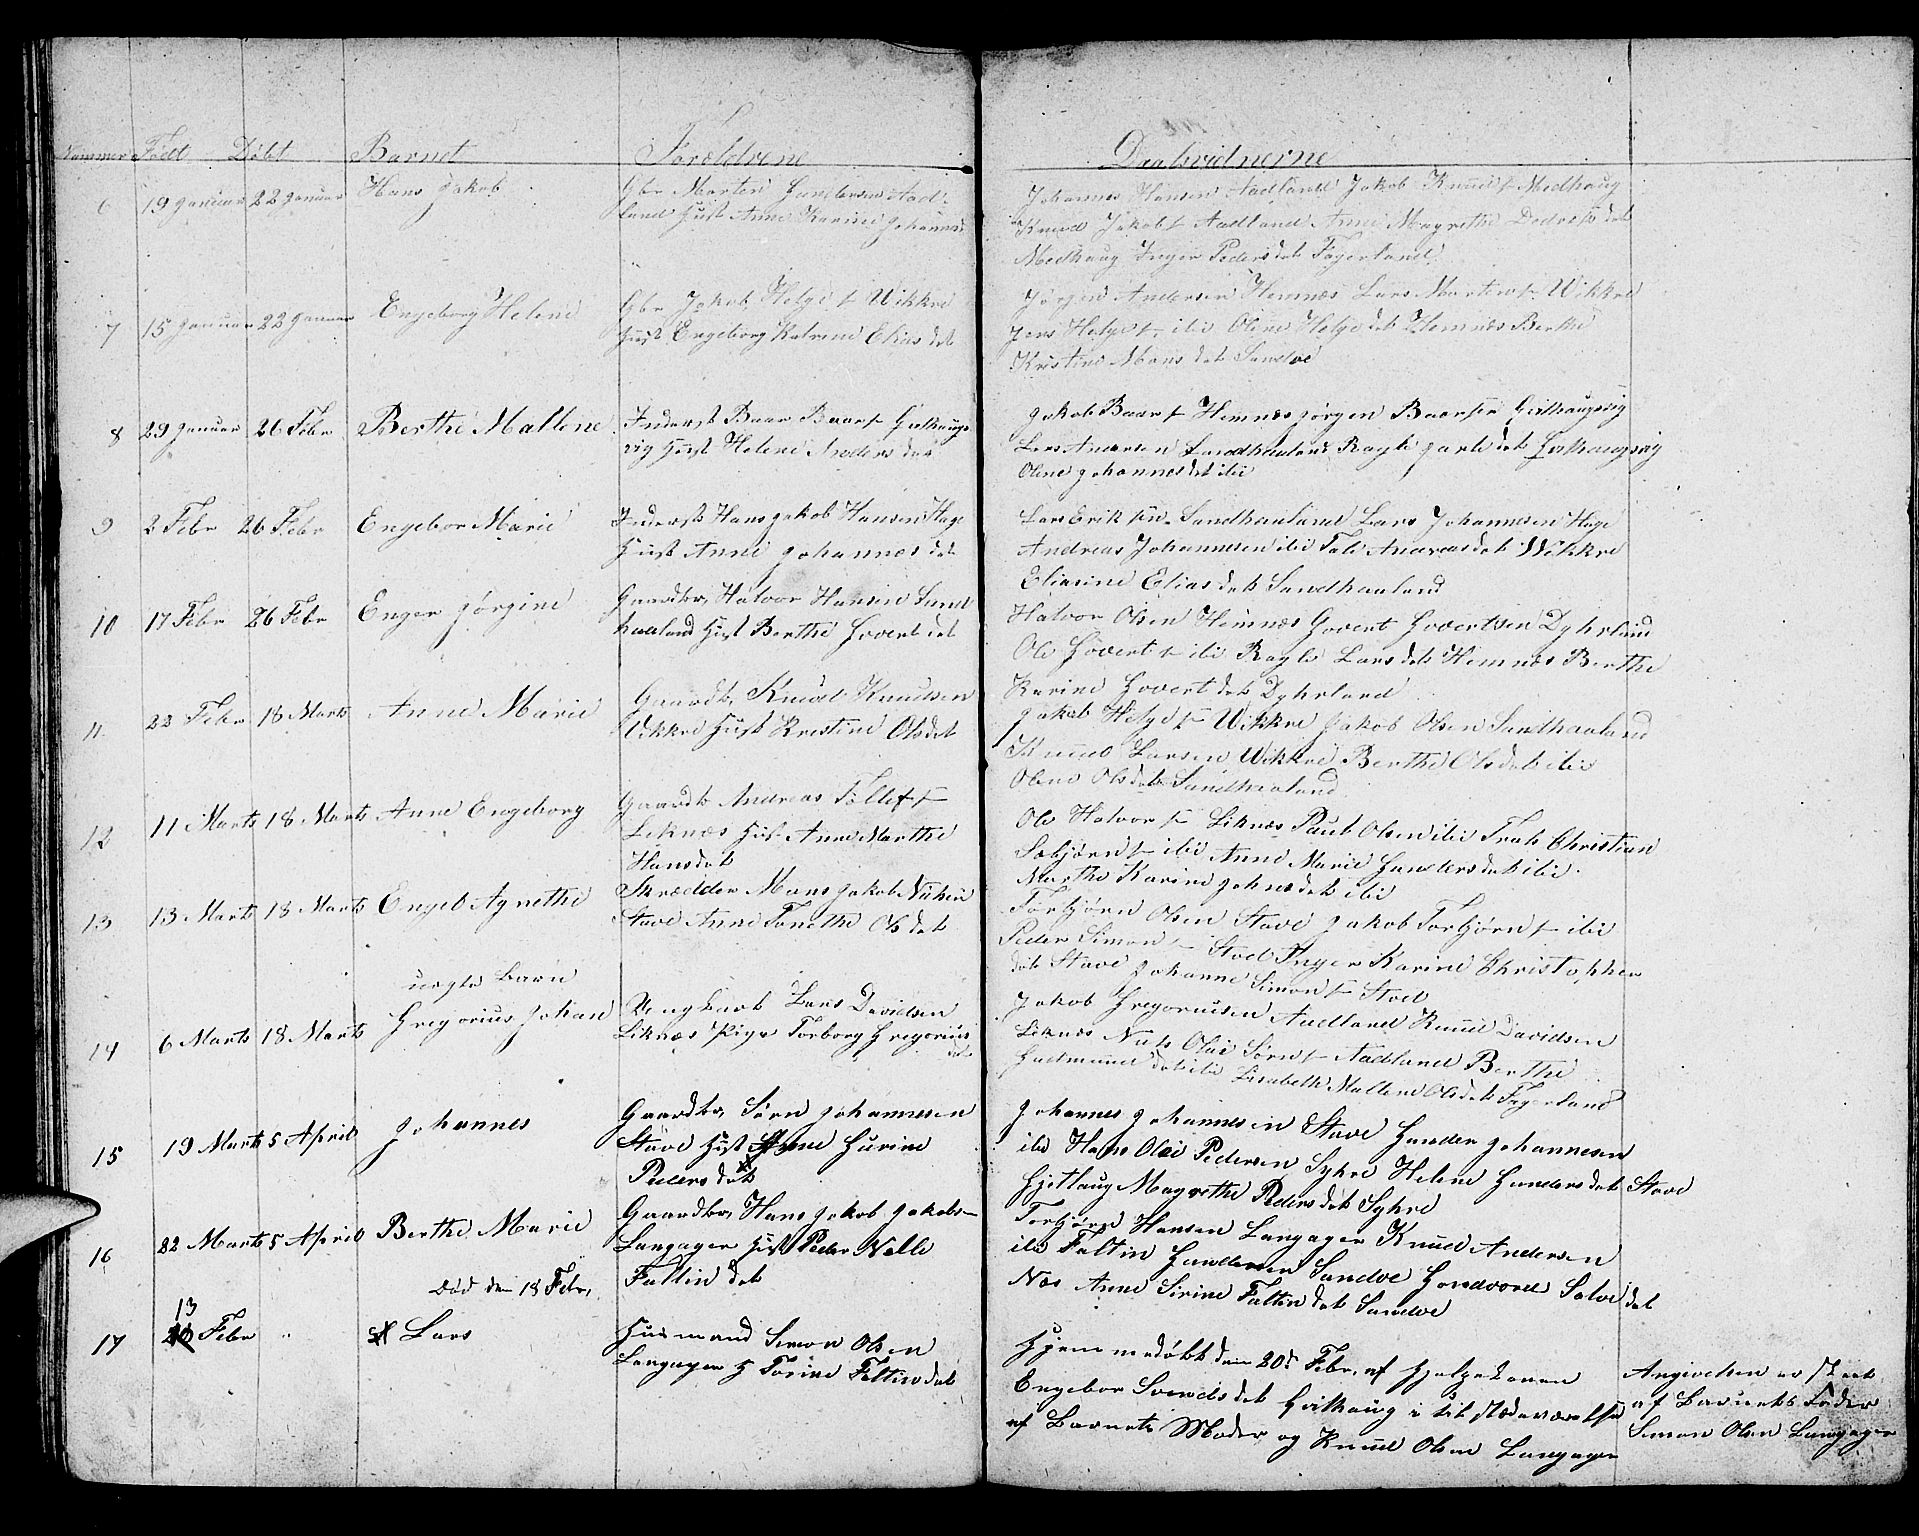 Nummer Født Døbt Barnet Forældrene Daabvidnerne
6 19 Januar 22 Januar Hans Jakob
Gbr Morten Gundersen Aad-
land Hust Anne Karine Johannes
Johannes Hansen Aadland Jakob Knud s Medhaug
Knud Jakob s Aadland Anne Magrethe det
Medhaug Inger Peders det Fagerland
7 15 Januar 22 Januar Engeborg Helene
Gbr Jakob Helge s Wikkre
Hust Engeborg Katrine Elias det
Jørgen Andersen Hemnæs Lars Morten s Wikkre
Jens Helge s ibi Oline Helge det Hemnæs Berthe
Kristine Mons det Sandve
8 29 Januar 26 Febr Berthe Mallene
Inderst Baar Baar s Githaugs
vig Hust Helene Anders det
Jakob Baar s Hemnæs Jørgen Baarsen Githaugsvig
Lars Andersen Sandhauland Ragle det Githaugsvig
Oline Johannes det ibi
9 2 Febr 26 Febr Engebor Marie
Inderst Hans Jakob Hansen Hage
Hust Anne Johannes det
Lars Erik sen Sandhauland Lars Johannesen Hage
Andreas Johannesen ibi Tale Andreas det Wikkre
Eliasine Elias det Sandhauland
10 17 Febr 26 Febr Enger Jørgine
Gaardbr, Halvor Hansen Sand
hauland Hust Berthe Govert det
Halvor Olsen Hemnæs Govert Govertsen Dyhrland
Ole Govert s ibi Ragle Lars det Hemnæs Berthe
Karine Govert det Dyhrland
11 22 Febr 18 Marts Anne Marie
Gaardb, Knud Knudsen
Vikkre Hust Kristine Ols det
Jakob Helge s Wikkre Jakob Olsen Sandhauland
Knud Larsen Wikkre Berthe Ols det ibi
Oline Ols det Sandhauland
12 11 Marts 18 Marts Anne Engeborg
Gaardb Andreas Tollef s
Leknæs Hust Anne Marthe
Hans det
Ole Halvor s Liknæs Paul Olsen ibi Christian
Sebjørn s ibi Anne Marie Gunders det ibi
Marthe Karine Johns det ibi
13 13 Marts 18 Marts Engeb Agnethe
Skrædder Mons Jakob
Stave Anne Tonethe Ols det
Torbjørn Olsen Stave Jakob Torbjørn s ibi
Peder Simon s Stod Inger Karine Christopher
det Stave Johanne Simon s Stod
uægte Barn
14 6 Marts 18 Marts Gregorius Johan
Ungkarl Lars Davidsen
Liknæs Pige Torborg Gregorius
det
Jakob Gregoriusen Aadland Knud Davidsen
Liknæs Nils Olai Sørn s Aadland Berthe
Gudmund det ibi Lisabeth Mallene Ols det Fagerland
15 19 Marts 5 April Johannes
Gaardbr, Sørn Johannesen
Stave Hust Anne Gurine
Peders det
Johannes Johannesen Stave Gunder Johannesen
ibi Hans Olai Pedersen Syhre Helene Gunders det Stave
Gjetlaug Magrethe Peders det Syhre
16 22 Marts 5 April Berthe Marie
Gaardbr, Hans Jakob Jakobs-
Langager Hust Peder Nelle
Faltin det
Torbjørn Hansen Langager Knud Andersen
ibi Faltin Gundersen Sandve Gondvord Salve det
Næs Anne Sirine Faltin det Sandve
Død den 18 Febr,
17 13 Febr " Lars
Husmand Simon Olsen
Langager H Torine Faltin det
Hjemmedøbt den 20d Febr, af Hjelpekonen
Engebor Svends det Gvithaug i tilstædeværelse
af Barnets Moder og Knud Olsen Langager
Angivelsen er skeet
af Barnets Fader
Simon Olsen Langager